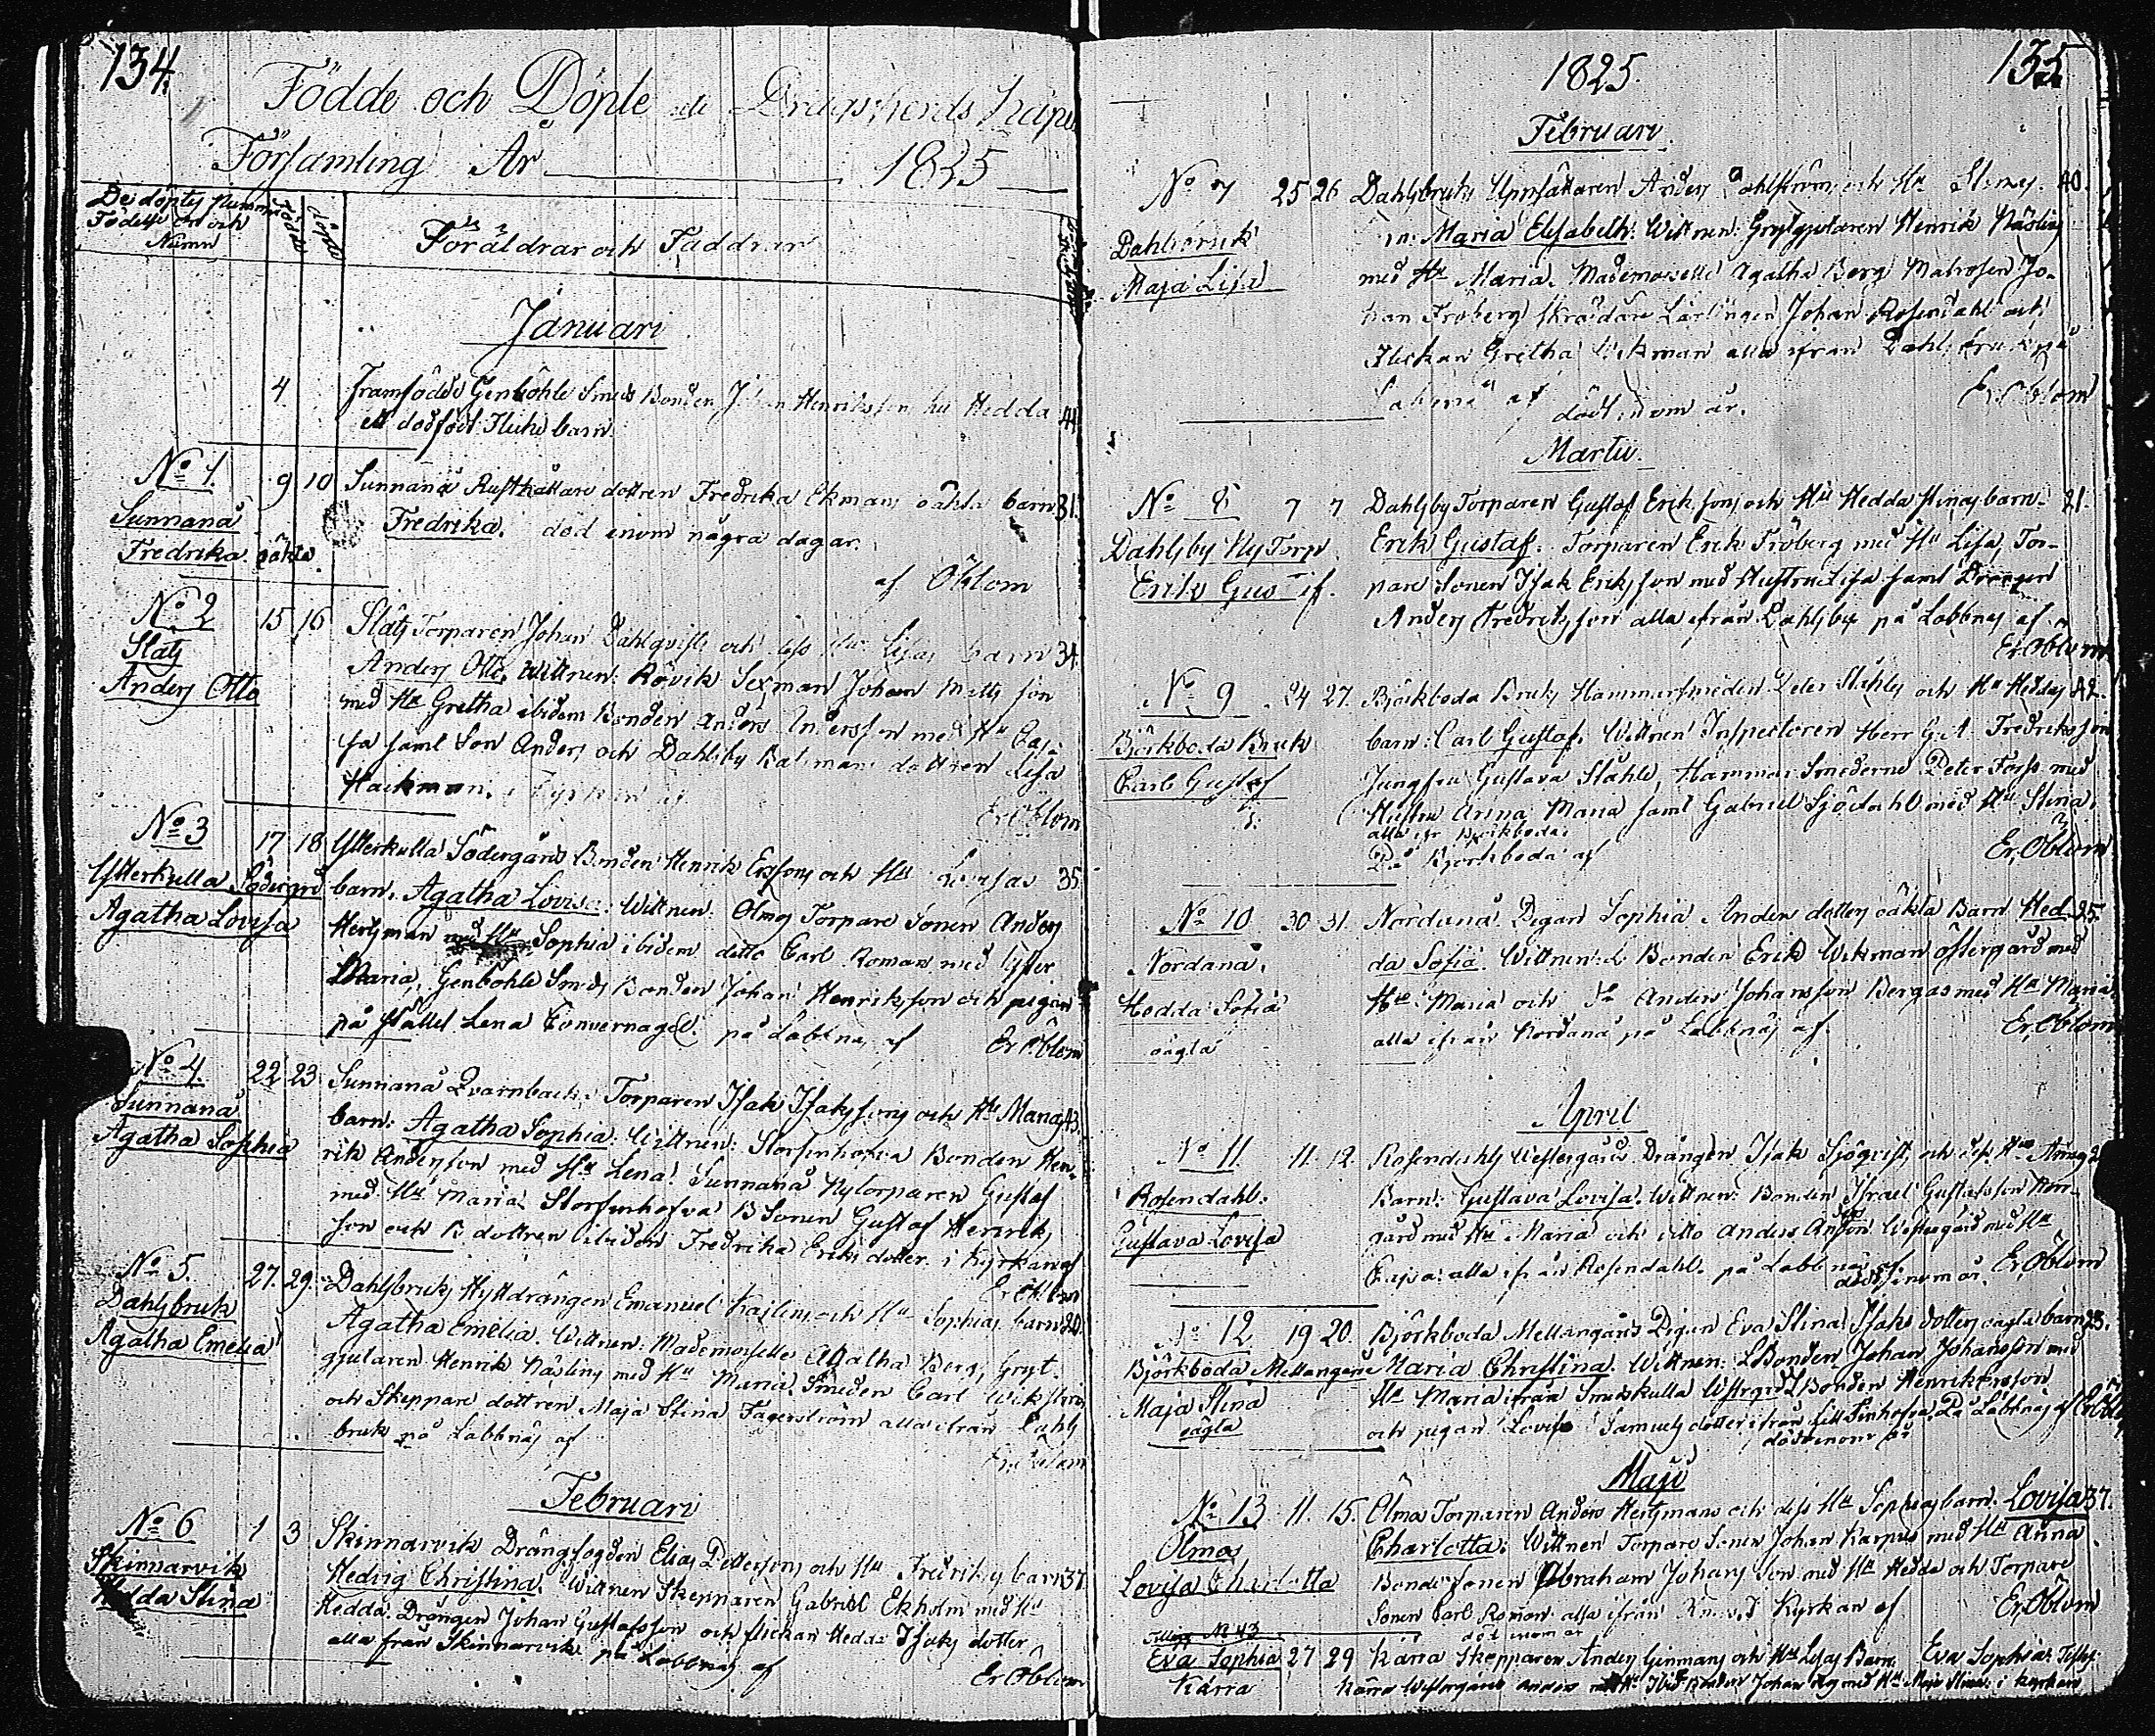 134.
Födde och Döpte
Församling År 1825
De döptes Nummer
Födelse ort och
Namn
födde
döpte
Föräldrar och Faddrar
Januari
4 Framfödde Genböhle Smeds Bonden Johan Henrikssons hu Hedda 41
ett dödfödt Flicke barn.
No 1. 9 10 Sunnanå Rusthållare dottren Fredrika Ekmans oäkta barn 31.
Sunnanå Fredrika. död inom några dagar.
Fredrika oäkta. af Öblom
No 2 15 16 Slätz Torparen Johan Dahlqvists och dess Hu Lisas barn 34.
Slätz Anders Otto. Wittnen: Rövik Sexman Johan Matts son
Anders Otto med Hu Gretha ibidem Bonden Anders Andersson med Hu Caj-
sa samt Son Anders och Dahlsby Båtsmans dottren Lisa
Hackman. Er. Öblom
No 3 17 18 Ytterkulla Södergårds Bonden Henrik Erssons och Hu Lovisas 35.
Ytterkulla Södergård barn. Agatha Lovisa: Wittnen: Ölmos Torpare Sonen Anders
Agatha Lovisa Hertzman Sophia ibidem ditto Carl Roman med syster
Maria, Genböhle Smeds Bonden Johan Henriksson och pigan
på stället Lena Convernagel. på Labbnäs af Er. Öblom
No 4. 22 23 Sunnanå Qvarnbacks Torparen Isak Isakssons och Hu Marias 43.
Sunnanå barn: Agatha Sophia: Wittnen: Storfinhofva Bonden Hen-
Agatha Sophia rik Andersson med Hu Lena. Sunnanå Nytorparen Gustaf
med Hu Maria. Storfinhofva B Sonen Gustaf Henriks
son och B dottren ibidem Fredrika Eriks dotter. i Kyrkan af
Er. Öblom
No 5. 27. 29. Dahlsbruks Hyttdrängen Emanuel och Hu Sophias barn 20.
Dahlsbruk Agatha Emelia. Wittnen: Mademoiselle Agatha Berg, Gryt-
Agatha Emelia gjutaren Henrik Näsling med Hu Maria. Smeden Carl Wikström
och Skeppare dottren Maja Stina Fagerström alla ifrån Dahls
bruk på Labbnäs af
Er. Öblom
Februari
No 6 1 3 Skinnarvik Drängfogden Elias Pettersons och Hu Fredrikas barn 37.
Skinnarvik Hedvig Christina. Wittnen Skepparen Gabriel Ekholm med Hu
Hedda Stina Hedda. Drängen Johan Gustafsson och flickan Hedda Isaks dotter
alla från Skinnarvik på Labbnäs af
Er. Öblom
1825. 135
Februari.
No 7 25 26 Dahlsbruks Uppsättaren Anders Dahlström och Hu 40.
Dahlsbruk Maria Elisabeth: Wittnen: Grytgjutaren Henrik Näsling
Maja Lisa med Hu Maria. Mademoiselle Agatha Berg Matrosen Jo-
han Fröberg skräddare Lärlingen Johan Rosendahl och
Flickan Gretha Wekman alla ifrån Dahlsbruk på
Labbnäs af Er. Öblom
dödt inom år.
Martii.
No 8 7 7 Dahlsby Torparen Gustaf Erikssons och Hu Hedda Stinas barn 21.
Dahlsby Ny Torp Erik Gustaf. Torparen Erik Fröberg med Hu Lisa, Tor-
Erik Gustaf. pare Sonen Isak Eriksson med Hustru Lisa samt Drängen
Anders Fredriksson alla ifrån Dahlsby på Labbnäs af
Er. Öblom
No 9 24 27. Björkboda Bruks Hammarsmeden Peter Ståhls och Hu Heddas 42.
Björkboda Bruk barn: Carl Gustaf. Wittnen Inspectoren Herr Fredriksson
Carl Gustaf Jungfru Gustava Ståhle, Hammar Smederne Peter Forss med
Hustru Anna Maria samt Gabriel Sjödahl med Hu Stina.
alla ifr Björkboda.
På Björkboda af Er. Öblom
No 10 30 31. Nordanå Pigan Sophia Anders dotters oäkta Barn Hed- 25.
Nordanå. da Sofia. Wittnen: Bonden Erik Wikman Östergård med
Hedda Sofia Hu Maria och Anders Johansson Bergas med Hu Maria
oägta alla ifrån Nordanå på Labbnäs af Er. Öblom
April
No 11. 11. 12. Rosendahls Westergårds Drängen Isak Sjöqvists och dess Hu Annas 2
Rosendahl. Barn: Gustava Lovisa. Wittnen: Bonden Israel Gustafsson Norr-
Gustava Lovisa gård med Hu Maria och ditto Anders Westergård med Hu
Cajsa: alla ifrån Rosendahl på Labbnäs af Er. Öblom
dödt inom år.
No 12 19 20. Björkboda Mellangårds Pigan Eva Stina Isaks dotters oägta barn 23.
Björkboda Mellangård Maria Christina. Wittnen: L Bonden Johan Johansson med
Maja Stina Hu Maria ifrån Smedskulla Westrgrd L Bonden Henrik
oägta och pigan Lovisa Samuels dotter ifrån Lill Finhofva. På Labbnäs af Er Öblom
död inom år
Maji
No 13 11. 15. Ölmos Torparen Anders Hertzmans och dess Hu Sophias barn. Lovisa 37.
Ölmos Charlotta: Wittnen Torpare Sonen Johan Karpus med Hu Anna
Lovisa Charlotta Bonde sonen Abraham Johans Son med Hu Hedda och Torpare
Sonen Carl Roman alla ifrån Kyrkan af Er. Öblom
död inom år
Tillägg No 43
Eva Sophia 27 29 Kärra Skepparen Anders Ginmans och Hu Lisas Barn Eva Sophia:
Kärra Kärra Westergårds Anders Bonden Johan med Hu Maja Stina: i kyrkan